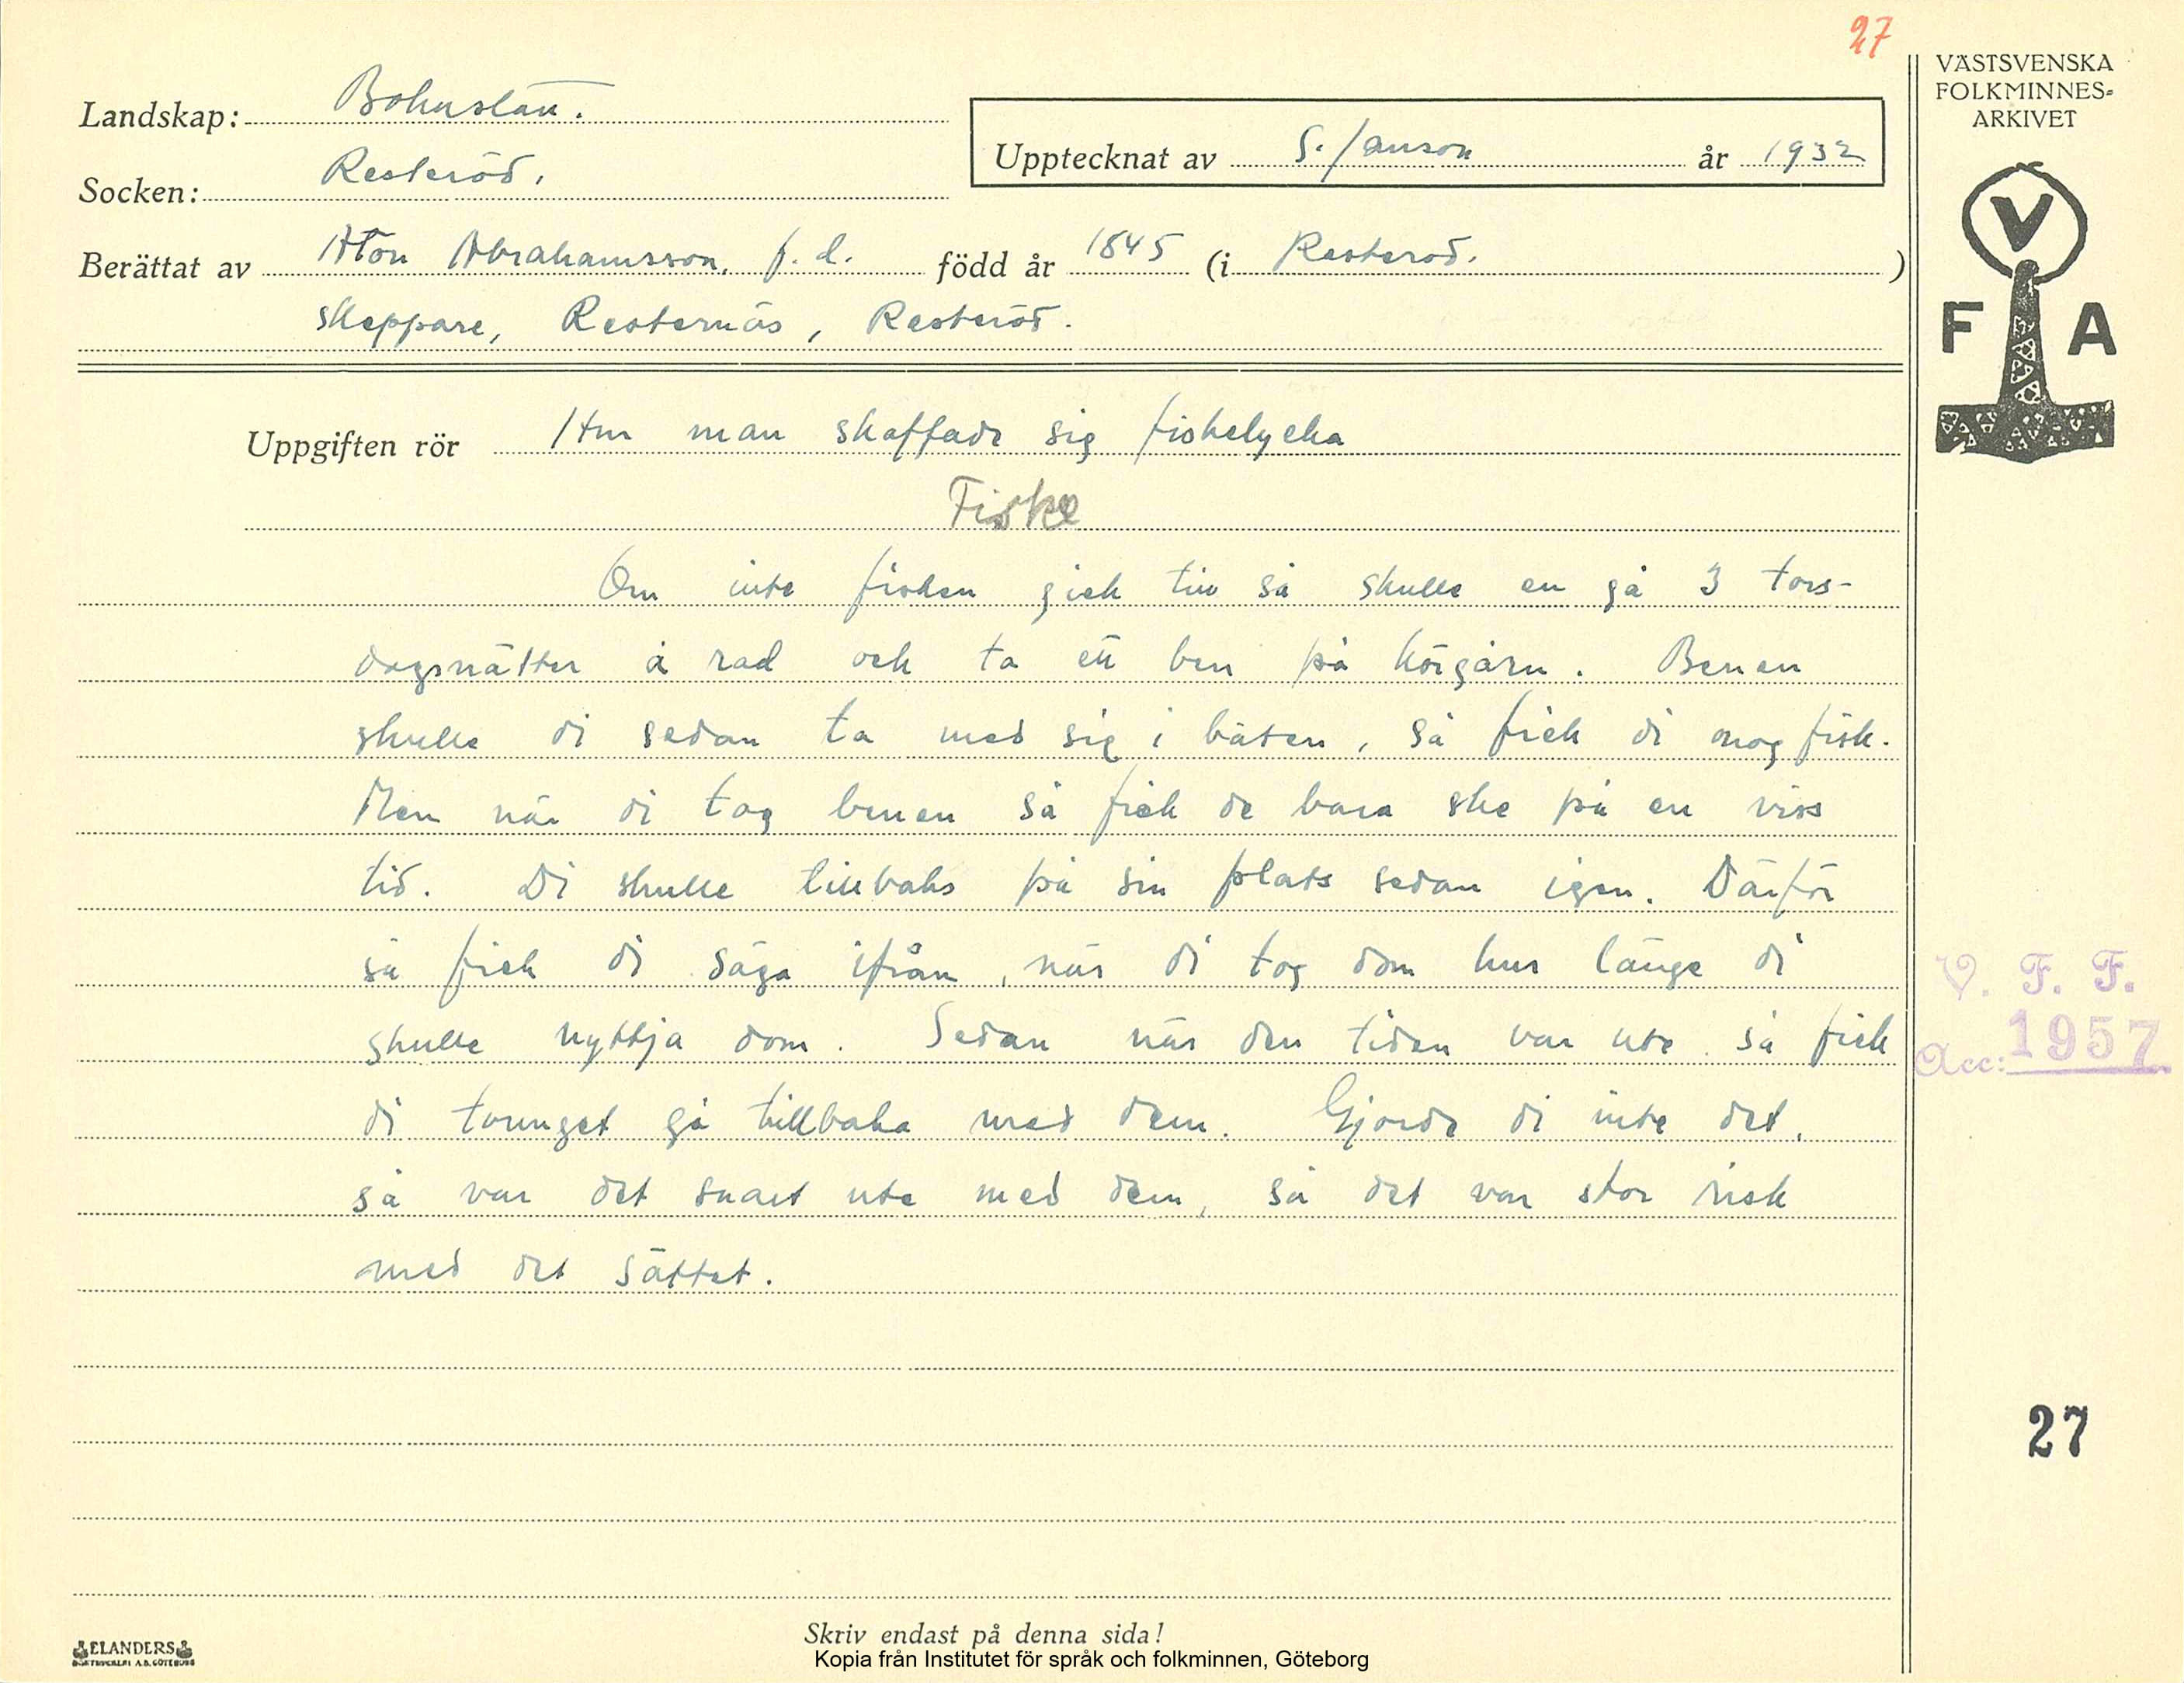 27
VÄSTSVENSKA
FOLKMINNES-
ARKIVET
Landskap: Bohuslän.
Upptecknat av S. Janson år 1932
Socken: Resteröd.
Berättat av Aron Abrahamsson, f. d. född år 1845 (i Resteröd. )
skeppare, Resternäs, Resteröd.
V
F A
Uppgiften rör Hur man skaffade sig fiskelycka
Fiske
Om inte fisken gick till så skulle en gå 3 tors-
dagsnätter å rad och ta ett ben på körgårn. Benen
skulle di sedan ta med sig i båten, så fick di nog fisk.
Men när di tog benen så fick de bara ske på en viss
tid. Di skulle tillbaks på sin plats sedan igen. Därför
så fick di säga ifrån, när di tog dom hur länge di
skulle nyttja dom. Sedan när den tiden var ute så fick
di tvunget gå tillbaka med dem. Gjorde di inte det,
så var det snart ute med dem, så det var stor risk
med det sättet.
V. F. F.
Acc: 1957
27
Skriv endast på denna sida!
ELANDERS
BOKTRYCKERI A.B. GÖTEBORG
Kopia från Institutet för språk och folkminnen, Göteborg